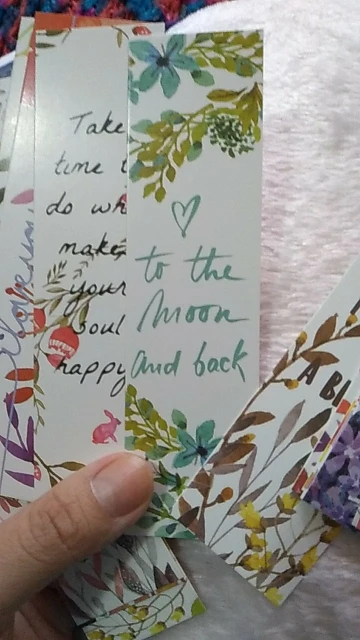 Take
time t
do wh
make
your
soul
happy
to the
Moon
and back
A BI